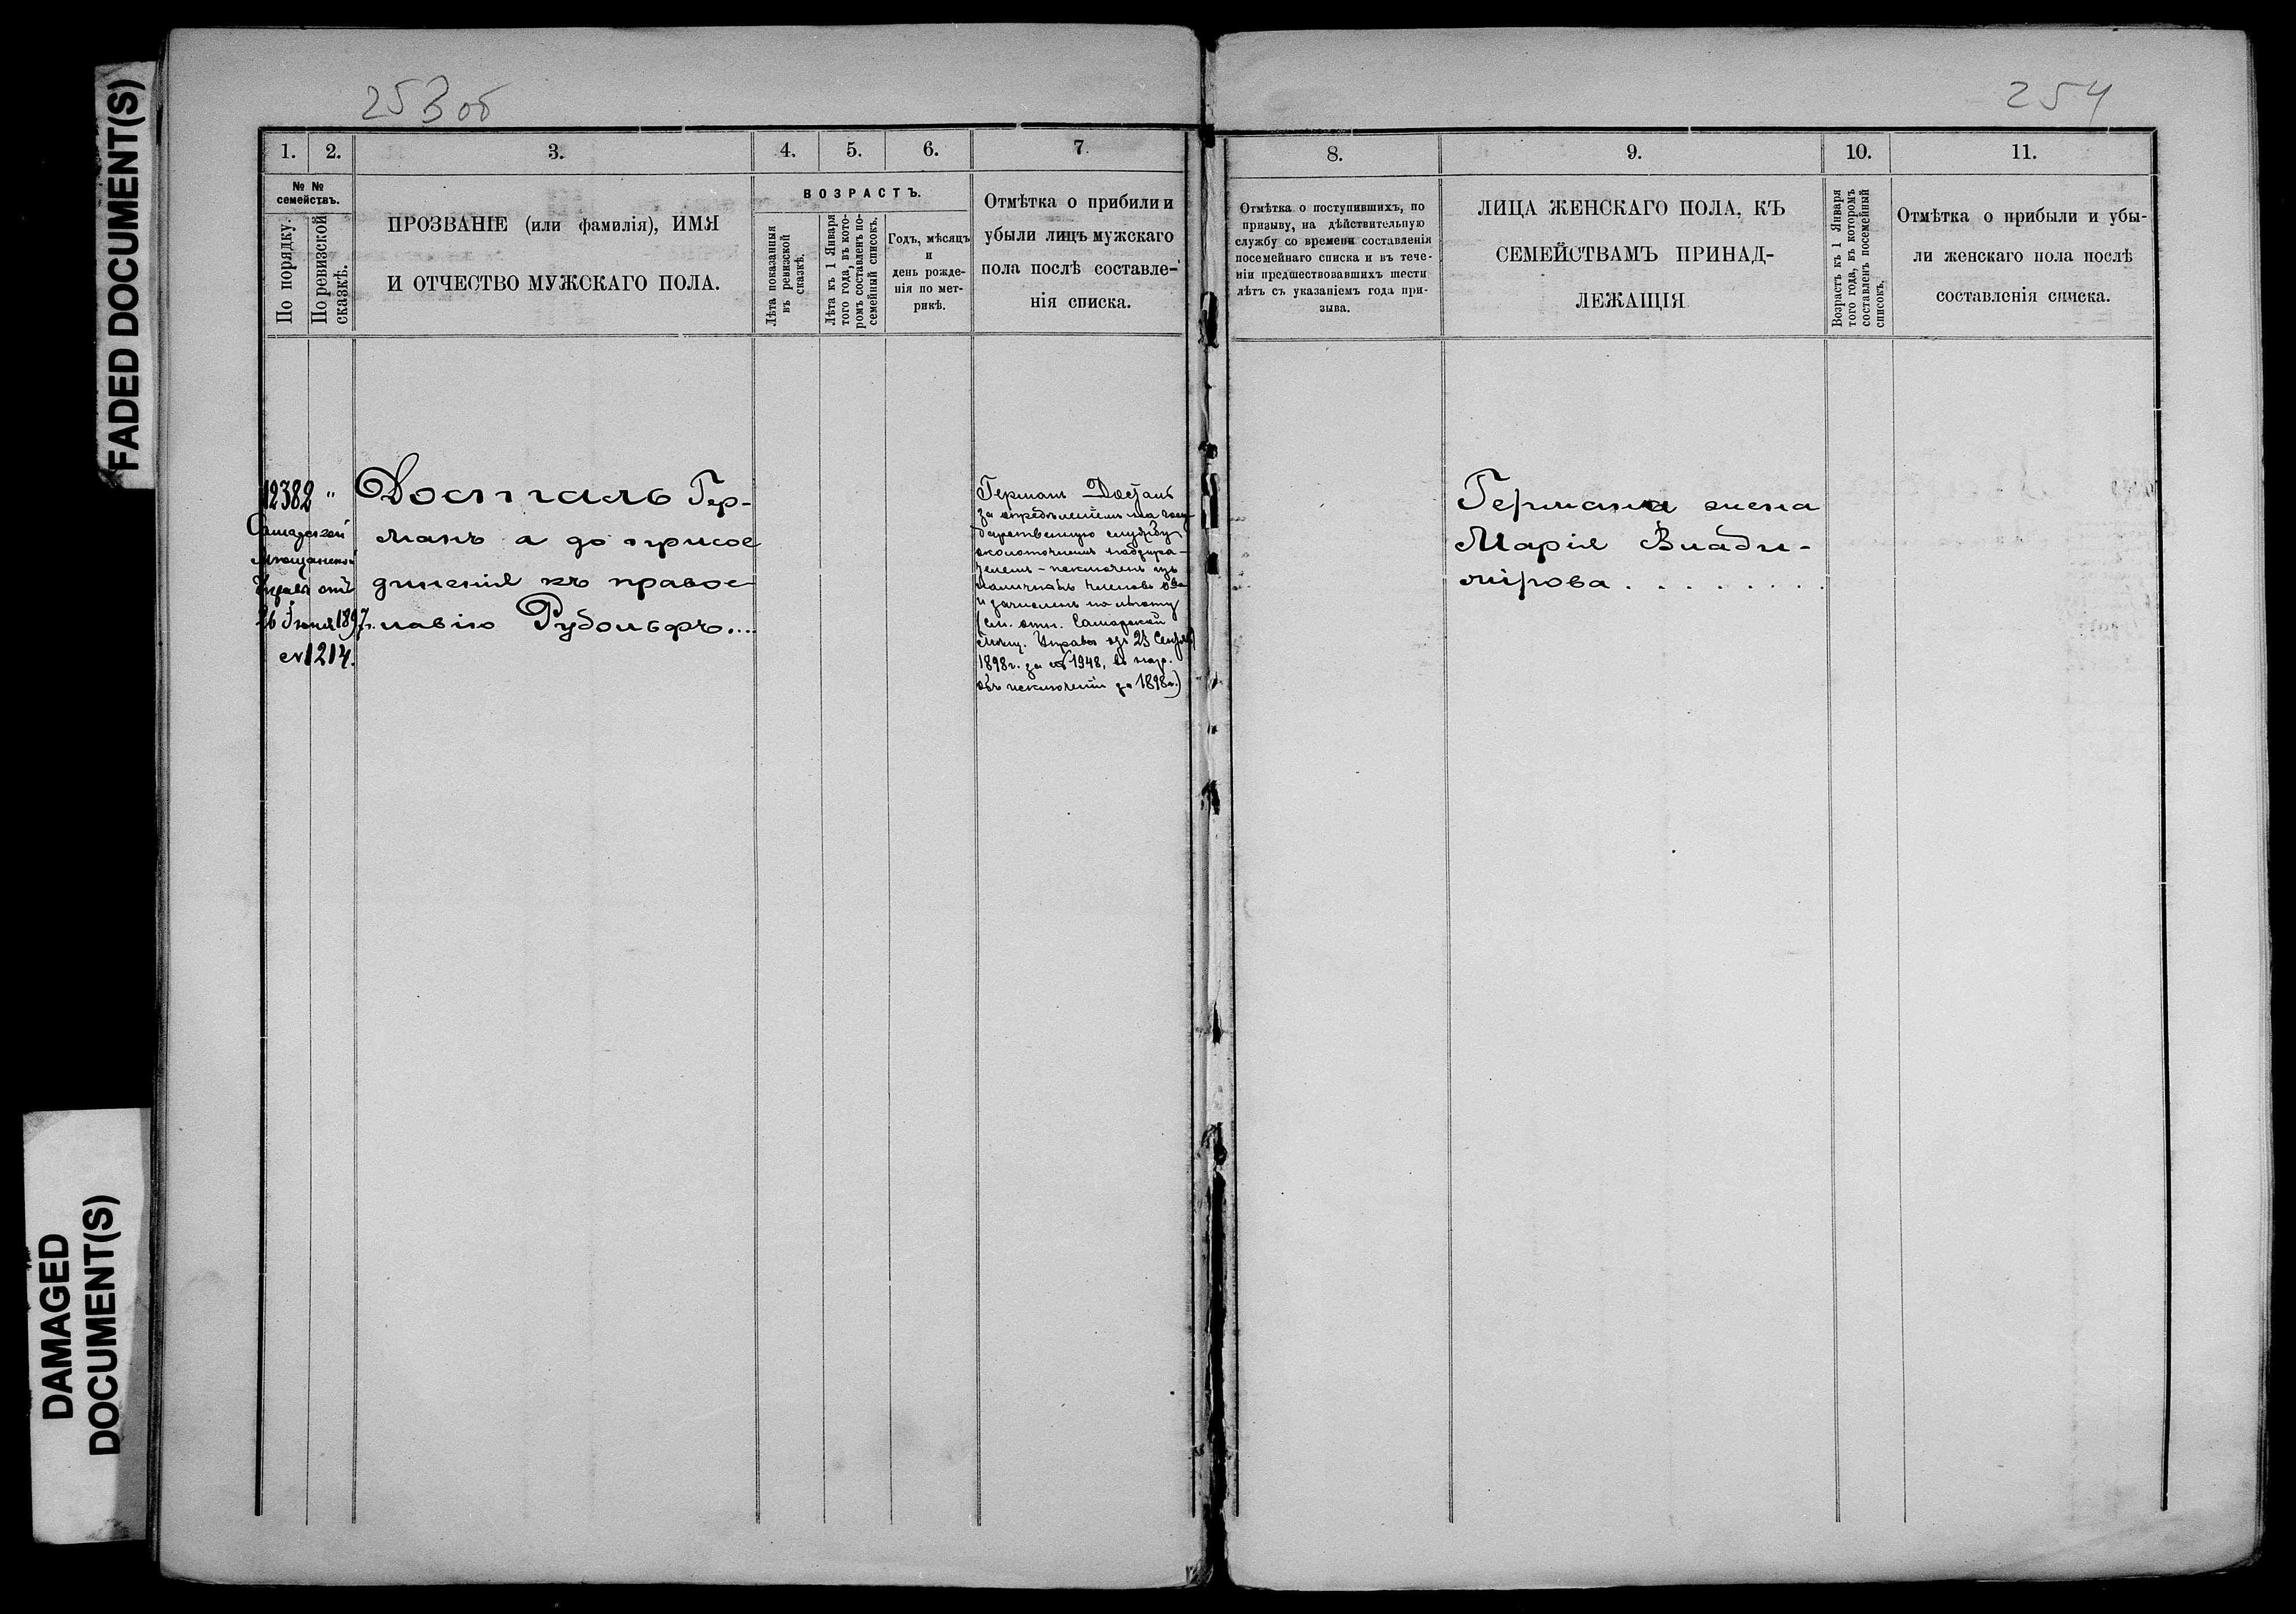 FADED DOCUMENT(S)
DAMAGED
DOCUMENT(S)
253 об
1. 2. 3. 4. 5. 6. 7.
№ №
семействъ.
По порядку.
По ревизской
сказкѣ.
ПРОЗВАНІЕ (или фамилія), ИМЯ
И ОТЧЕСТВО МУЖСКАГО ПОЛА.
ВОЗРАСТЪ.
Лѣта показанныя
въ ревизской
сказкѣ.
Лѣта къ 1 Января
того года, въ кото-
ромъ составленъ по-
семейный списокъ.
Годъ, мѣсяцъ
и
день рожде-
нія по мет-
рикѣ.
Отмѣтка о прибили и
убыли лицъ мужскаго
пола послѣ составле-
нія списка.
12382 "
Самарской
Мѣщанской
Управы отъ
26 Іюня 1897 г.
№ 1214.
Досталь Гер-
манъ а до присое
диненія къ право-
славію Рудольфъ....
Германъ Досталь
за опредѣленіемъ на госу-
дарственную службу
околоточнымъ надзира-
телемъ - исключенъ изъ
членовъ о-ва
и зачисленъ по
(см. отн. Самарской
Мѣщ. Управы отъ 23 Сент.
1898 г. за № 1948, въ нар.
объ исключеніи до 1898 г.)
254
8. 9. 10. 11.
Отмѣтка о поступившихъ, по
призыву, на дѣйствительную
службу со времени составленія
посемейнаго списка и въ тече-
ніи предшествовавшихъ шести
лѣтъ съ указаніемъ года при-
зыва.
ЛИЦА ЖЕНСКАГО ПОЛА, КЪ
СЕМЕЙСТВАМЪ ПРИНАД-
ЛЕЖАЩІЯ
Возрастъ къ 1 Января
того года, въ которомъ
составленъ посемейный
списокъ.
Отмѣтка о прибыли и убы-
ли женскаго пола послѣ
составленія списка.
Германа жена
Марія Влади-
мірова . . . . . . . . .